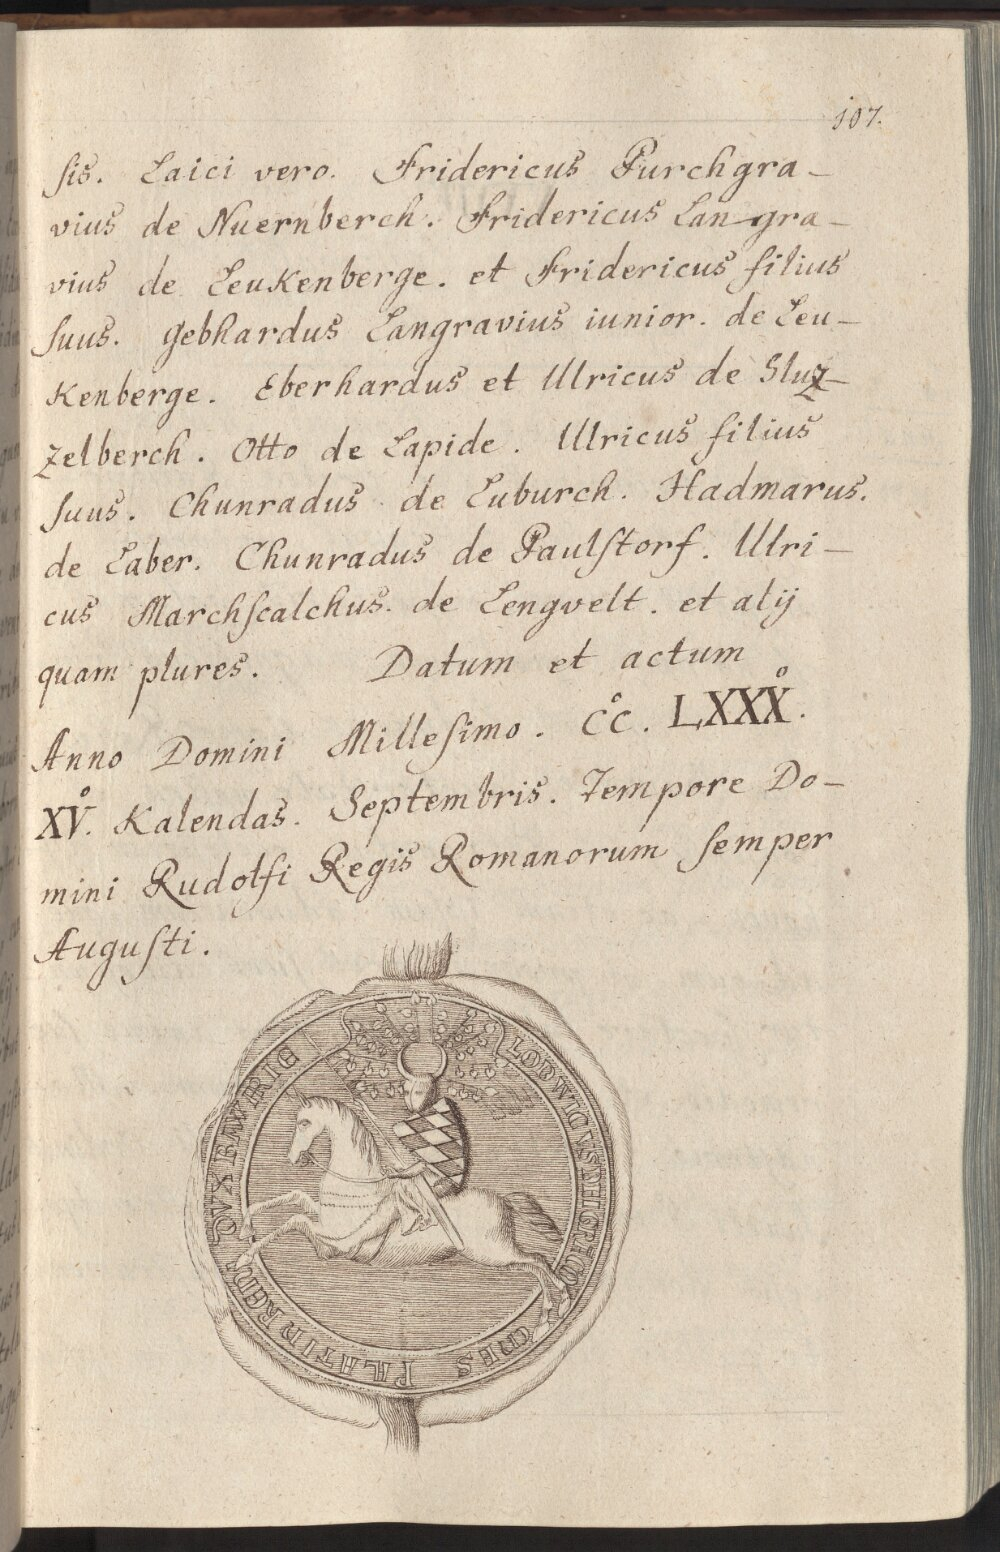 107.
sis. Laici vero. Fridericus Purchgra-
vius de Nuernberch. Fridericus Langra-
vius de Leukenberge. et Fridericus filius
suus. Gebhardus Langravius iunior. de Leu-
Kenberge. Eberhardus et Ulricus de Sluz-
zelberch. Otto de Lapide. Ulricus filius
suus. Chunradus de Luburch. Hadmarus.
de Laber. Chunradus de Paulstorf. Ulri-
cus Marchscalchus. de Lengvelt. et alij
quam plures. Datum et actum
Anno Domini Millesimo. C̊C. LXXX̊.
XV̊. Kalendas. Septembris. Tempore Do-
mini Rudolfi Regis Romanorum semper
Augusti.
LODWICVS DEI GRA CO
MES PALATIN RENI DVX BAWARIE